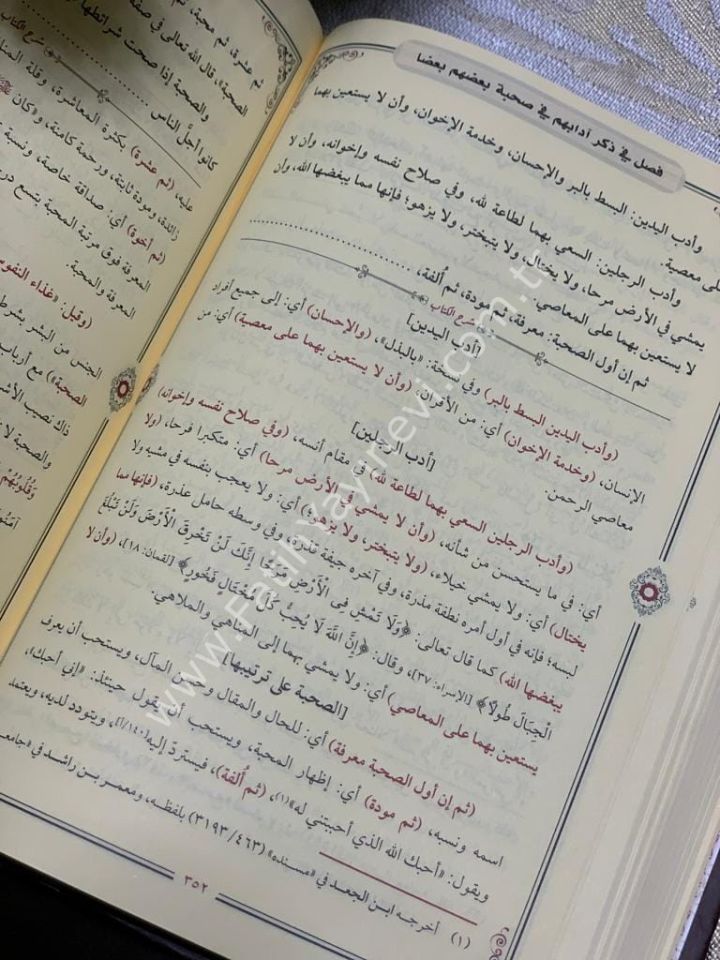 فصل في ذكر آدابهم في صحبة بعضهم بعضا
وأدب اليدين: البسط بالبر والإحسان، وخدمة الإخوان، وأن لا يستعين بهما
على معصية.
وأدب الرجلين: السعي بهما لطاعة لله، وفي صلاح نفسه وإخوانه، وأن لا
يمشي في الأرض مرحا، ولا يختال، ولا يتبختر، ولا يزهو؛ فإنها مما يبغضها الله، وأن
لا يستعين بهما على المعاصي.
ثم إن أول الصحبة: معرفة، ثم مودة، ثم ألفة،
شرح الكتاب
[أدب اليدين]
(وأدب اليدين البسط بالبر) وفي نسخة: «بالبذل»، (والإحسان) أي: إلى جميع أفراد
الإنسان، (وخدمة الإخوان) أي: من الأقران، (وأن لا يستعين بهما على معصية) أي: من
معاصي الرحمن.
[أدب الرجلين]
(وأدب الرجلين السعي بهما لطاعة لله) في مقام أنسه، (وفي صلاح نفسه وإخوانه)
أي: في ما يستحسن من شأنه، (وأن لا يمشي في الأرض مرحا) أي: متكبرا فرحا، (ولا
يختال) أي: ولا يمشي خيلاء، (ولا يتبختر، ولا يزهو) أي: ولا يعجب بنفسه في مشيه ولا
لبسه؛ فإنه في أول أمره نطفة مذرة، وفي آخره جيفة قذرة، وفي وسطه حامل عذرة، (فإنها مما
يبغضها الله) كما قال تعالى: ﴿وَلَا تَمْشِ فِى الْأَرْضِ مَرَحًا إِنَّكَ لَنْ تَخْرِقَ الْأَرْضَ وَلَنْ تَبْلُغَ
الْجِبَالَ طُولًا﴾ [الإسراء: ٣٧]، وقال: ﴿إِنَّ اللَّهَ لَا يُحِبُّ كُلَّ مُخْتَالٍ فَخُورٍ﴾ [لقمان: ١٨]، (وأن لا
يستعين بهما على المعاصي) أي: ولا يمشي بهما إلى المناهي والملاهي.
[الصحبة على ترتيبها]
(ثم إن أول الصحبة معرفة) أي: للحال والمقال وحسن المآل، ويستحب أن يعرف
اسمه ونسبه، (ثم مودة) أي: إظهار المحبة، ويستحب أن يقول حينئذ: «إني أحبك»،
ويقول: «أحبك الله الذي أحببتني له»(١)، (ثم ألفة)، فيستردّ إليه [١٤٠/أ]، ويتودد لديه، ويعتمد
(١) أخرجه ابن الجعد في «مسنده» (٣١٩٣/٤٦٣) بلفظه، ومعمر بن راشد في «جامعه
٣٥٢
ثم عشرة، ثم محبة،
الصحبة»، قال الله تعالى في صفة
والصحبة إذا صحت شرائطها
كانوا أجلّ الناس
شرح الكتاب
عليه، (ثم عشرة) بكثرة المعاشرة، وقلة
زائدة، ومودة ثابتة، ورحمة كامنة، و«كان
(ثم أخوة) أي: صداقة خاصة، ونسبة
المعرفة فوق مرتبة المحبة بتسع
المعرفة والمحبة.
(وقيل: «غذاء النفوس
الجنس من البشر بشرط
الصحبة») مع أرباب
ذاك نصيب
والصحبة لا
وَقُلُوبُهُمْ
www.FatihYayinevi.com.t